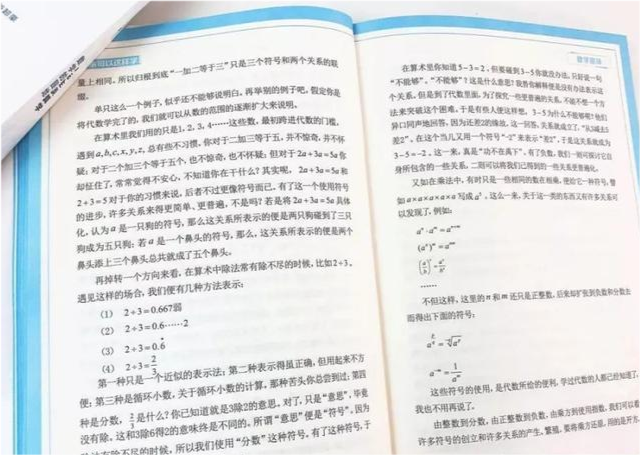 数学可以这样学
量上相同。所以归根到底“一加二等于三”只是三个符号和两个关系的联
缀。
单只这么一个例子，似乎还不能够说明白。再举别的例子吧，假定你是
将代数学完了的，我们就可以从数的范围的逐渐扩大来说明。
在算术里我们用的只是1, 2, 3, 4……这些数，最初跨进代数的门槛，
遇到a, b, c, x, y, z，总有些不习惯。你对于二加三等于五，并不惊奇，并不怀
疑；对于二个加三个等于五个，也不惊奇，也不怀疑；但对于2a+3a=5a你
却怔住了，常常觉得不安心，不知道你在干什么？其实呢，2a+3a=5a和
2+3=5对于你的习惯来说，后者不过更像符号而已。有了这一个使用符号
的进步，许多关系来得更简单、更普遍，不是吗？若是将2a+3a=5a具体
化，认为a是一只狗的符号，那么这关系所表示的便是两只狗碰到了三只
狗成为五只狗；若a是一个鼻头的符号，那么，这关系所表示的便是两个
鼻头添上三个鼻头总共就成了五个鼻头。
再掉转一个方向来看，在算术中除法常有除不尽的时候，比如2÷3。
遇见这样的场合，我们便有几种方法表示：
(1) 2÷3=0.667弱
(2) 2÷3=0.6……2
(3) 2÷3=0.6̇
(4) 2÷3=2/3
第一种只是一个近似的表示法；第二种表示得虽正确，但用起来不方
便；第三种是循环小数，关于循环小数的计算，那种苦头你总尝到过；第四
种是分数，2/3是什么？你已知道就是3除2的意思，对了，只是“意思”，毕竟
没有除。这和3除6得2的意味终是不同的。所谓“意思”便是“符号”，因为
有除不尽的时候，所以我们使用“分数”这种符号，有了这种符号，于
数学趣谈
在算术里你知道5-3=2，但要碰到3-5你就没办法，只好说一句
“不能够”。“不能够”？这是什么意思？我替你解释便是没有办法表示这
个关系。但是到了代数里面，为了探究一些更普遍的关系，不能不想一个方
法来突破这个困难。于是有些人便这样想，3-5为什么不能够呢？他们
异口同声地回答，因为还差2的缘故。这一回答，关系就成立了，“从3减去5
差2”。在这个当儿又用一个符号“-2”来表示“差2”，于是这关系就成为
3-5=-2。这一来，真是“功不在禹下”。有了负数，我们一则可探讨它自
身所包含的一些关系，二则可以将我们已得到的一些关系更普遍化。
又如在乘法中，有时只是一些相同的数在相乘，便给它一种符号，譬
如a×a×a×a×a写成a⁵，这么一来，关于这一类的东西又有许多关系可
以发现了，例如：
aⁿ·aᵐ=aⁿ⁺ᵐ
(aⁿ)ᵐ=aⁿᵐ
(a/b)ⁿ=aⁿ/bⁿ
……
不但这样，这里的n和m还只是正整数，后来却扩张到负数和分数去
而得出下面的符号：
a⁻ᵐ=1/aᵐ
这些符号的使用，是代数所给的便利，学过代数的人都已经知道了，
我也不用再说了。
由整数到分数，由正整数到负数，由乘方到使用指数，我们可以看
许多符号的创立和许多关系的产生，繁殖。要将乘方还原，用的是开方，